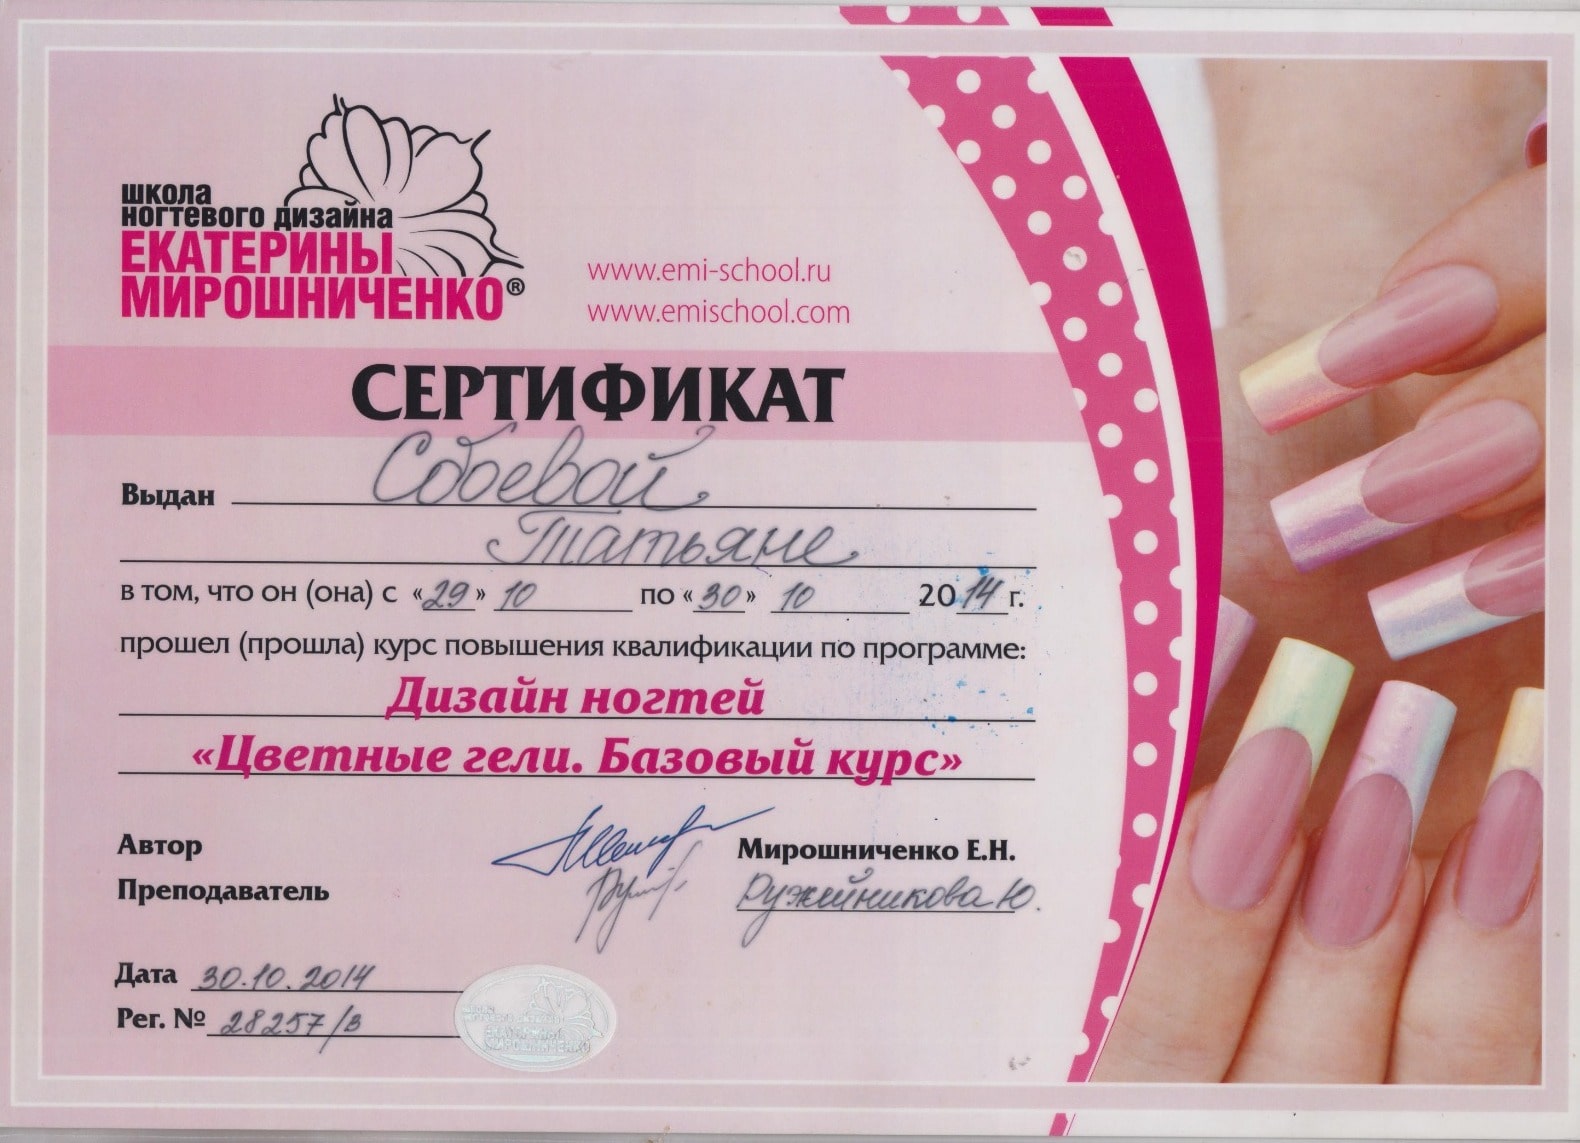 школа
ногтевого дизайна
ЕКАТЕРИНЫ
МИРОШНИЧЕНКО®
www.emi-school.ru
www.emischool.com
СЕРТИФИКАТ
Выдан Сбоевой
Татьяне
в том, что он (она) с «29» 10 по «30» 10 2014 г.
прошел (прошла) курс повышения квалификации по программе:
Дизайн ногтей
«Цветные гели. Базовый курс»
Автор Мирошниченко Е.Н.
Преподаватель Ружейникова Ю.
Дата 30.10.2014
Рег. № 28257/в
школа
ногтевого дизайна
ЕКАТЕРИНЫ
МИРОШНИЧЕНКО